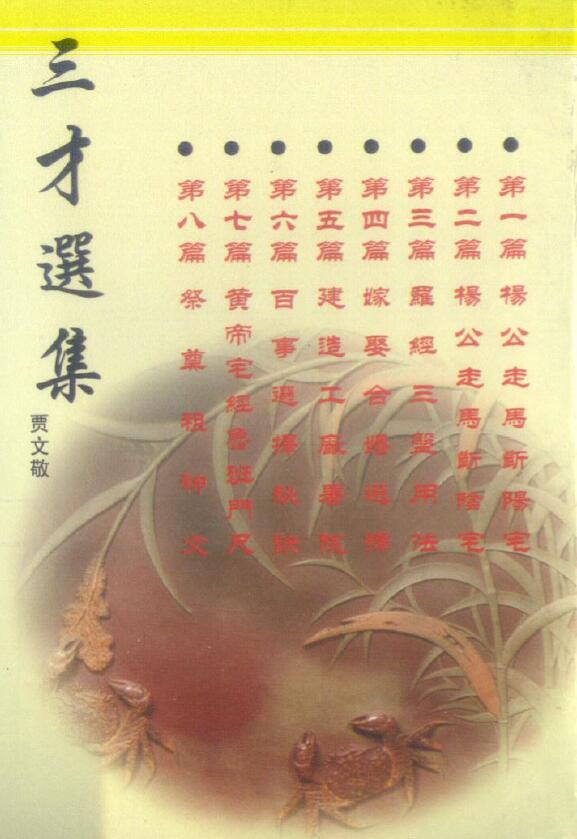 第一篇 楊公走馬斷陽宅
第二篇 楊公走馬斷陰宅
第三篇 羅經三盤用法
第四篇 嫁娶合婚選擇
第五篇 建造工廠署院
第六篇 百事選擇秘訣
第七篇 黄帝宅經魯班門尺
第八篇 祭奠祖神文
三才選集
贾文敬